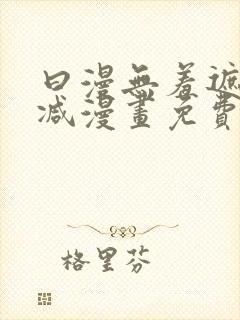 日漫無羞遮
减漫畫免費
格里芬